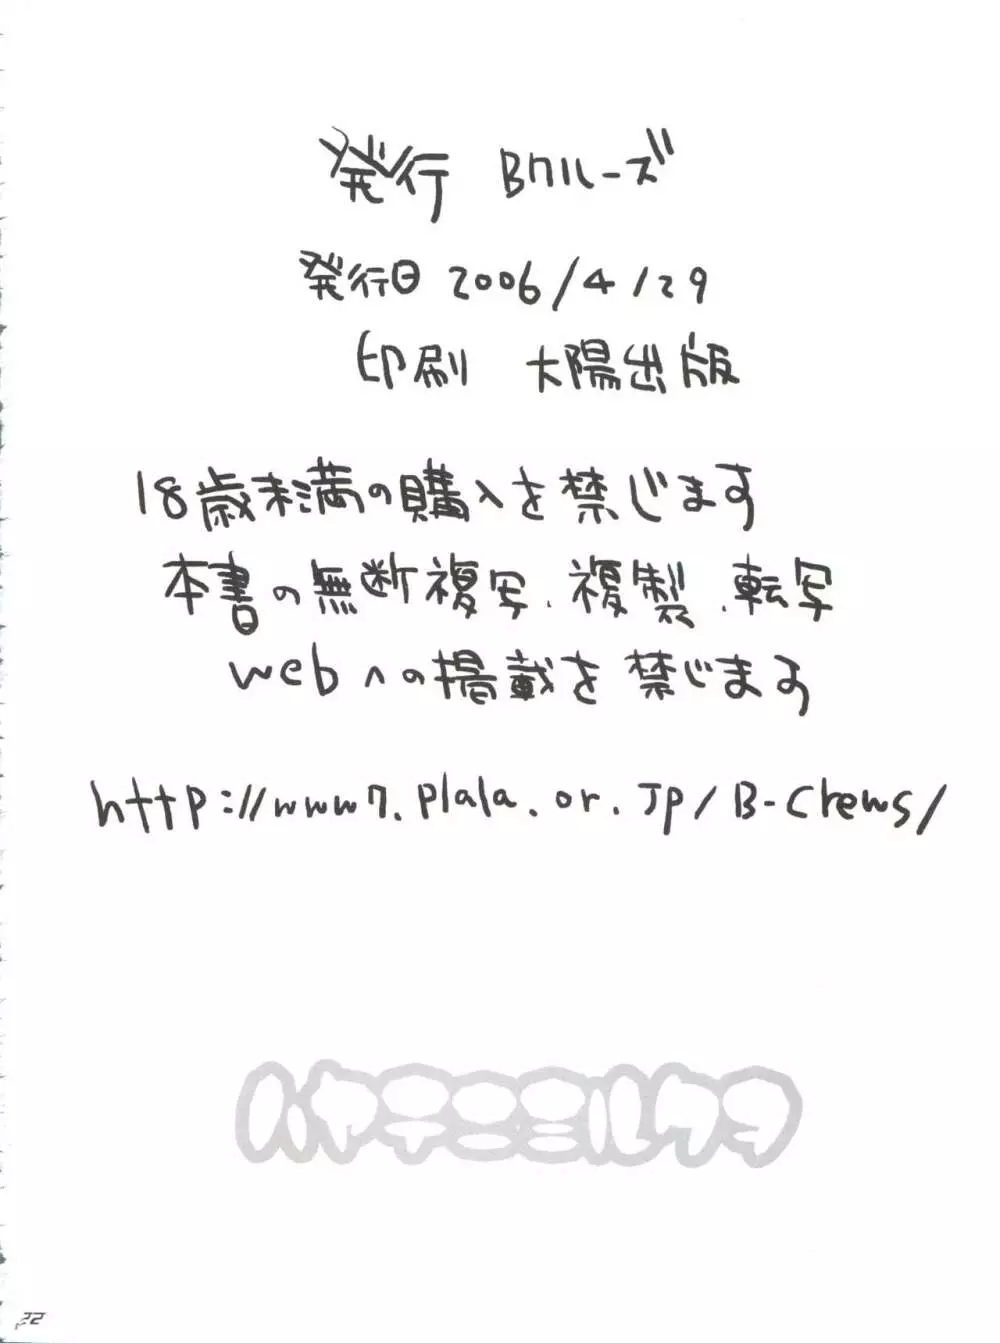 発行 Bクルーズ
発行日 2006/4/29
印刷 大陽出版
18歳未満の購入を禁じます
本書の無断複写、複製、転写
webへの掲載を禁じます
http://www7.plala.or.Jp/B-Crews/
ハヤテニミルケヲ
22